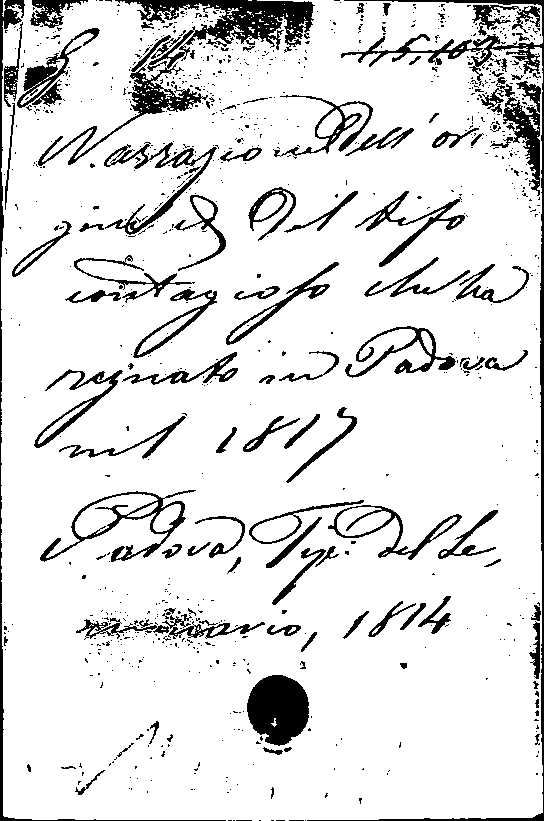 G. 14 15,103
Narrazione dell'ori-
gine e del tifo
contagioso che ha
regnato in Padova
nel 1817
Padova, Tip. del Se,
minario, 1814